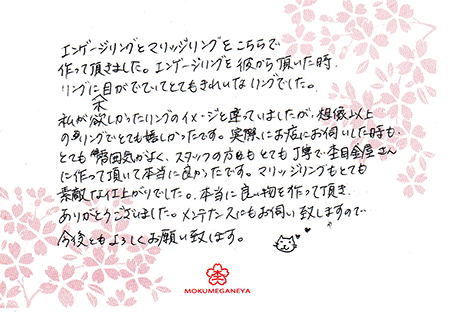 エンゲージリングとマリッジリングをこちらで
作って頂きました。エンゲージリングを彼から頂いた時、
リングに木目がでていてとてもきれいなリングでした。
私が欲しかったリングのイメージと違っていましたが、想像以上
のリングでとても嬉しかったです。実際にお店にお伺いした時も、
とても雰囲気がよく、スタッフの方もとても丁寧で杢目金屋さん
に作って頂いて本当に良かったです。マリッジリングもとても
素敵な仕上がりでした。本当に良い物を作って頂き、
ありがとうございました。メンテナンスにもお伺い致しますので
今後ともよろしくお願い致します。
MOKUMEGANEYA